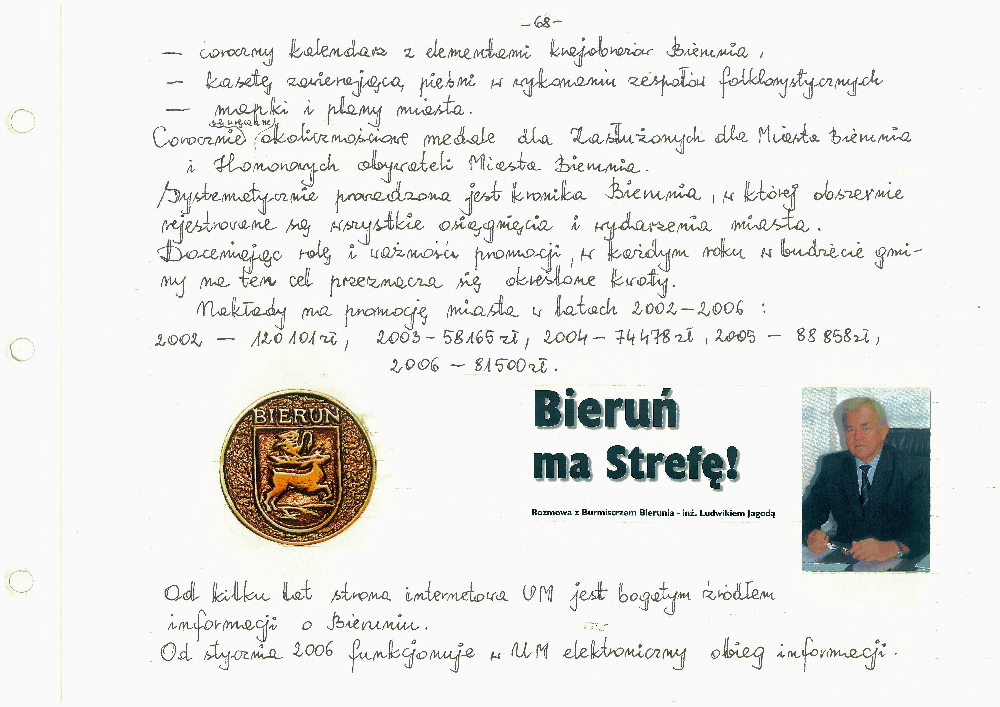 - 68 -
— coroczny kalendarz z elementami krajobrazów Bierunia,
— kasetę zawierającą pieśni w wykonaniu zespołów folklorystycznych
— mapki i plany miasta.
są wręczane
Corocznie okolicznościowe medale dla Zasłużonych dla Miasta Bierunia
i Honorowych obywateli Miasta Bierunia.
Systematycznie prowadzona jest kronika Bierunia, w której obszernie
rejestrowane są wszystkie osiągnięcia i wydarzenia miasta.
Doceniając rolę i ważność promocji, w każdym roku w budżecie gmi-
ny na ten cel przeznacza się określone kwoty.
Nakłady na promocję miasta w latach 2002-2006 :
2002 — 120 101 zł, 2003 - 58165 zł, 2004 - 74478 zł, 2005 - 88 858 zł,
2006 — 81500 zł.
BIERUŃ
Bieruń
ma Strefę!
Rozmowa z Burmistrzem Bierunia - inż. Ludwikiem Jagodą
Od kilku lat strona internetowa UM jest bogatym źródłem
informacji o Bieruniu.
Od stycznia 2006 funkcjonuje w UM elektroniczny obieg informacji.